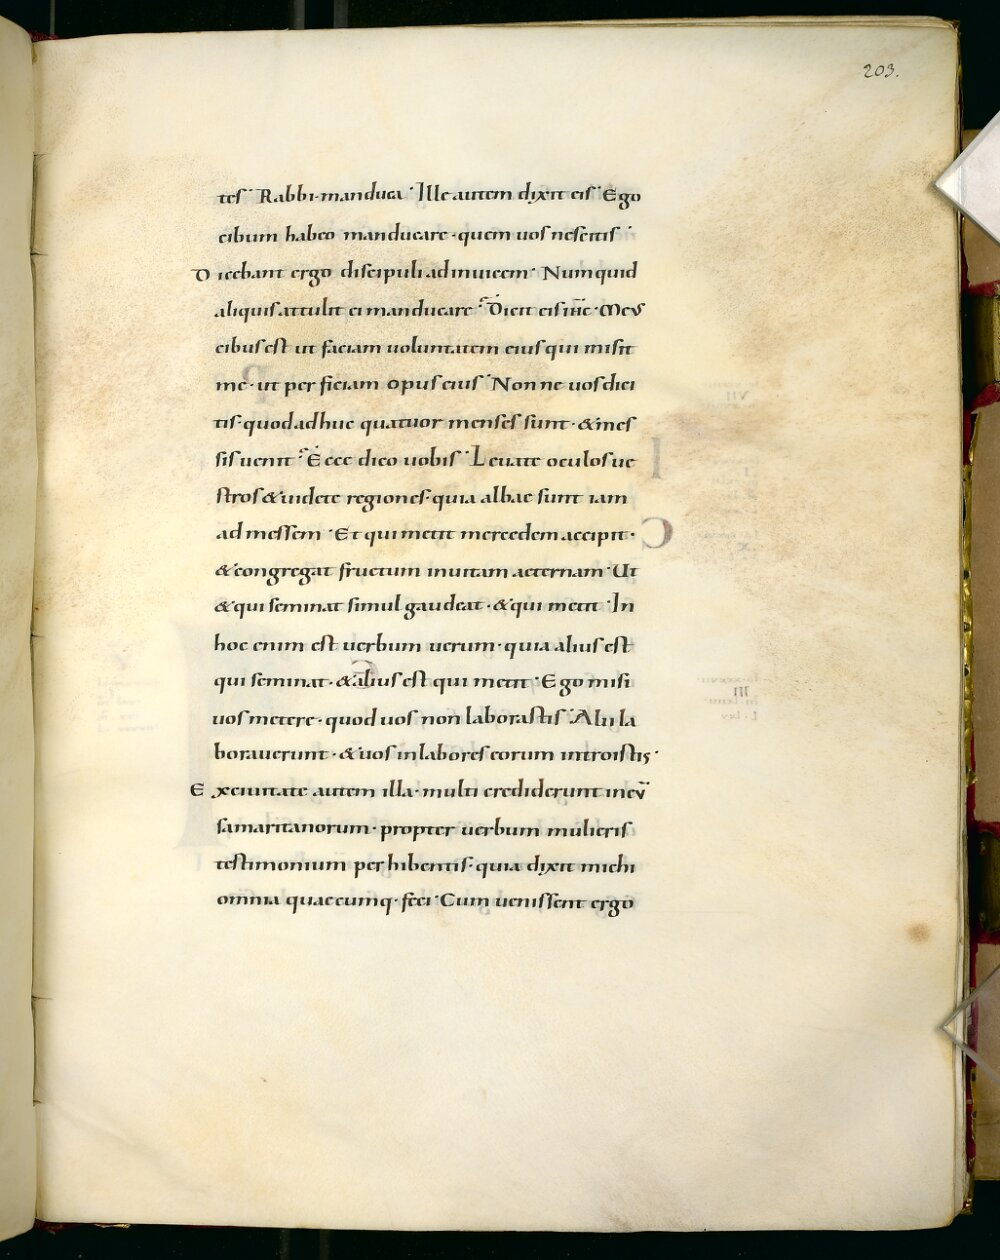 203.
tes Rabbi·manduca· Ille autem dixit eis· Ego
cibum habeo manducare·quem uos nescitis·
Dicebant ergo discipuli adinuicem· Numquid
aliquis attulit ei manducare· Dicit eis ihc·Meus
cibus est ut faciam uoluntatem eius qui misit
me·ut perficiam opus eius· Nonne uos dici
tis·quod adhuc quatuor menses sunt·&mes
sis uenit· Ecce dico uobis· Leuate oculos ue
stros &uidete regiones·quia albae sunt iam
ad messem· Et qui metit mercedem accipit·
&congregat fructum inuitam aeternam·Ut
&qui seminat simul gaudeat·&qui metit· In
hoc enim est uerbum uerum·quia alius est
qui seminat·&alius est qui metit· Ego misi
uos metere·quod uos non laborastis· Alii la
borauerunt·&uos inlabores eorum introistis·
Exciuitate autem illa·multi crediderunt ineū
samaritanorum·propter uerbum mulieris
testimonium perhibentis·quia dixit michi
omnia quaecumq·feci· Cum uenissent ergo